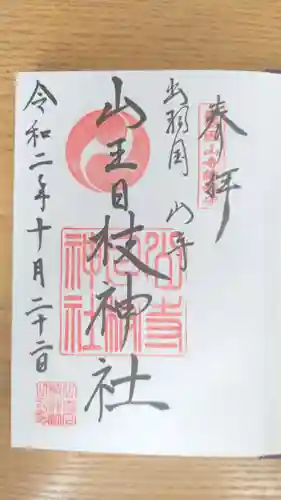 奉拝
出羽国 山寺
山王日枝神社
令和二年十月二十二日